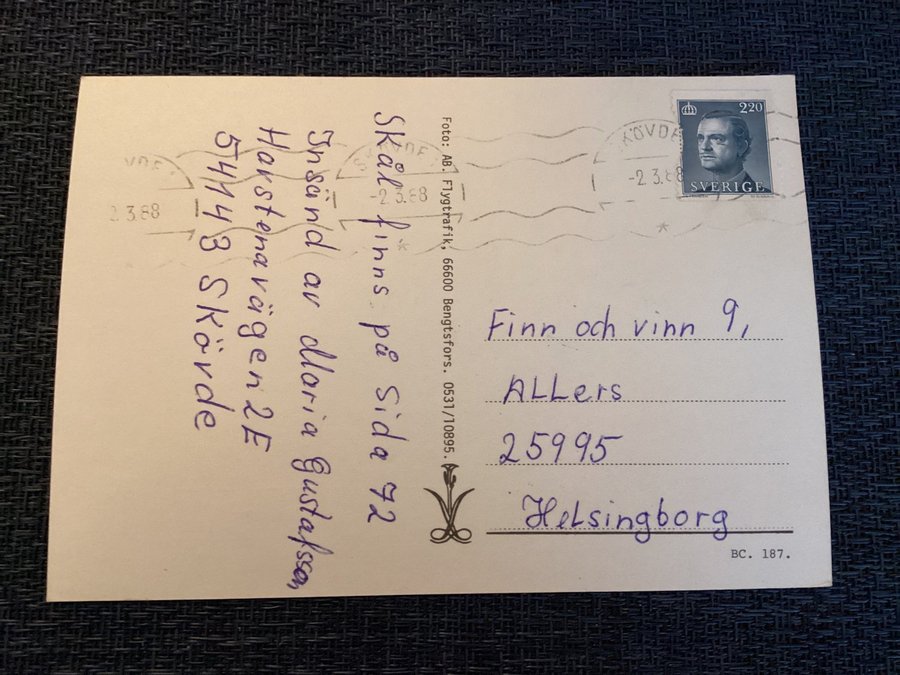 Skål finns på sida 72
Insänd av Maria Gustafsson
Horstenavägen 2E
54143 Skövde
Foto: AB. Flygtrafik, 66600 Bengtsfors. 0531/10895.
2.3.88
SKÖVDE
-2.3.88
KÖVDE
-2.3.88
220
SVERIGE
Finn och vinn 9,
ALLers
25995
Helsingborg
BC. 187.